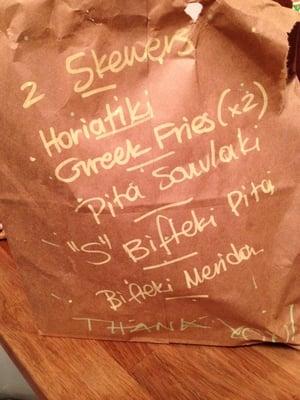 2 Skewers
Horiatiki
Greek Fries (x2)
Pita Souvlaki
"S" Bifteki Pita
Bifteki Merida
THANK